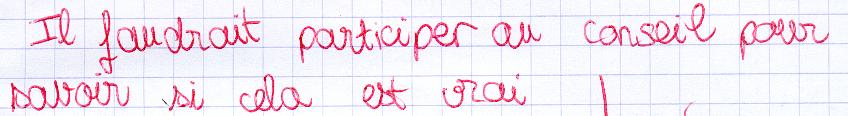 Il faudrait participer au conseil pour
savoir si cela est vrai !